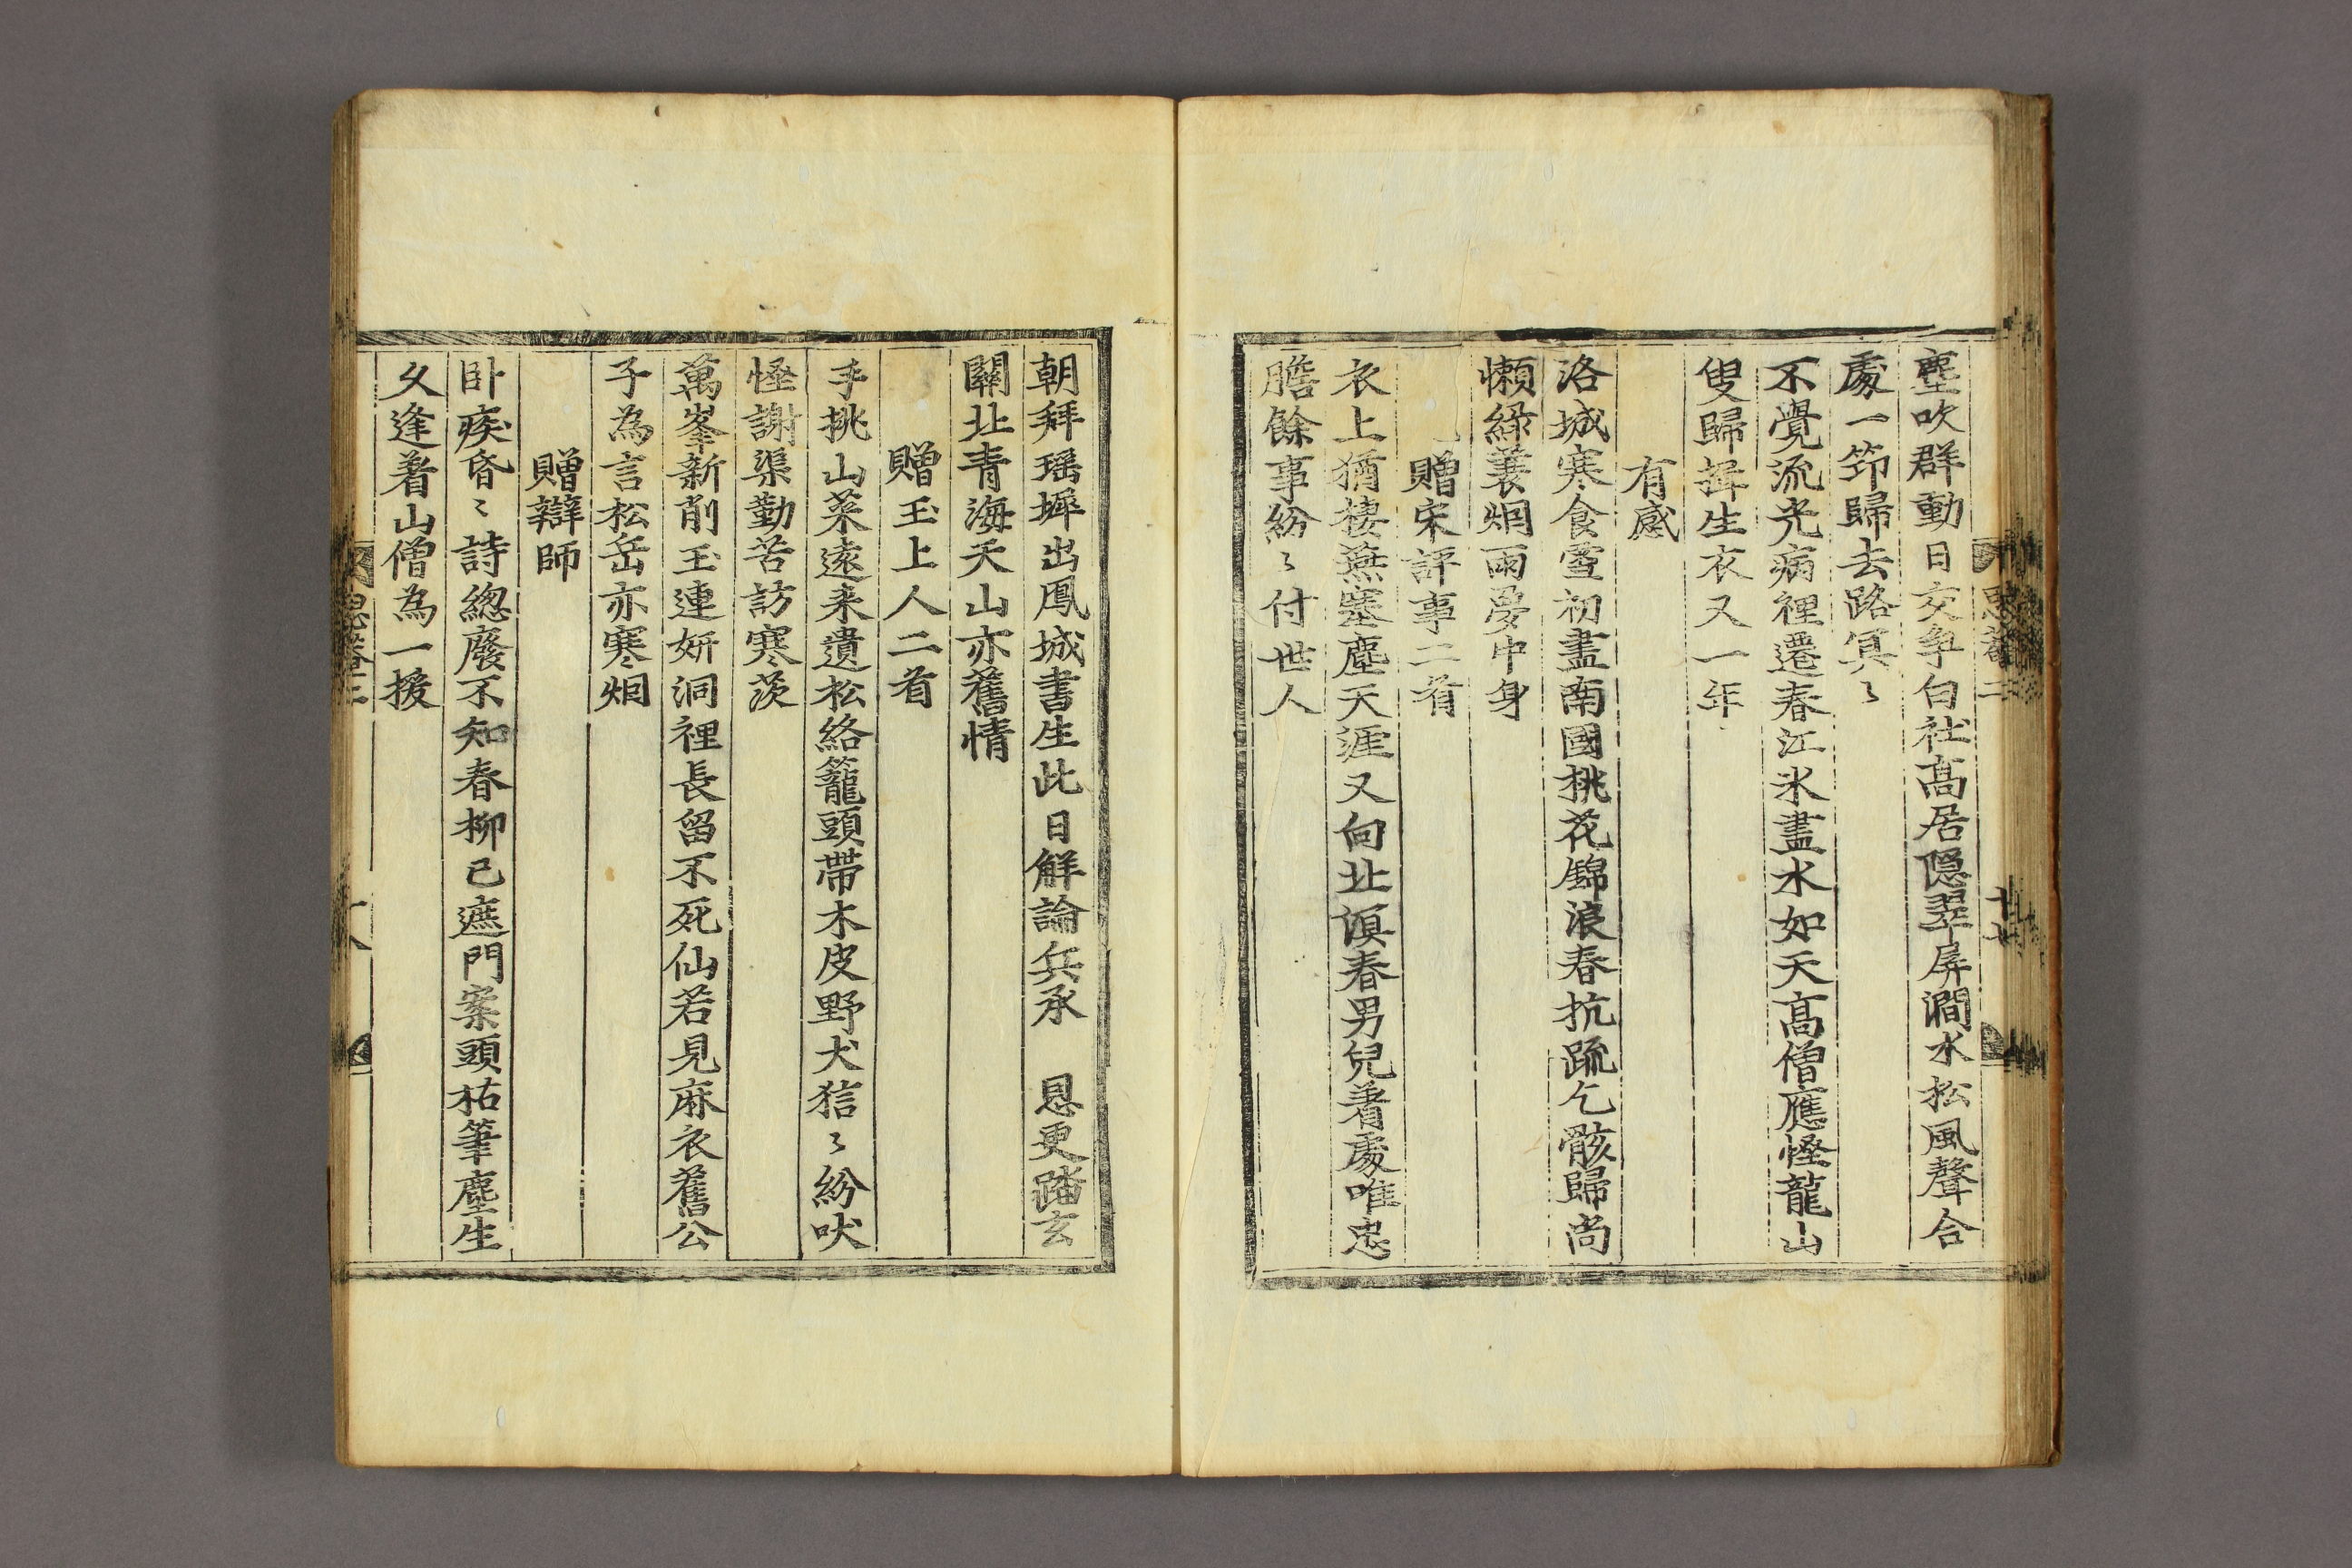 塵吹群動日交争白社髙居隠翠屏澗水松風聲合
處一笻歸去路冥〻
不覺流光病裡遷春江氷盡水如天髙僧應怪龍山
叟歸揖生衣又一年
有感
洛城寒食雪初盡南國桃花錦浪春抗疏乞骸歸尚
懶綠蓑烟雨夢中身
贈宋評事二首
衣上猶棲燕塞塵天涯又向北湏春男兒着處唯忠
膽餘事紛〻付世人
十七
朝拜瑶墀出鳳城書生此日解論兵承 恩更踏玄
關北青海天山亦舊情
贈玉上人二首
手挑山菜遠来遺松絡籠頭帶木皮野犬狺〻紛吠
怪謝渠勤苦訪寒茨
萬峯新削玉連妍洞裡長留不死仙若見麻衣舊公
子為言松岳亦寒烟
贈辯師
卧疾昏〻詩緫廢不知春柳已遮門案頭枯筆塵生
久逢着山僧為一援